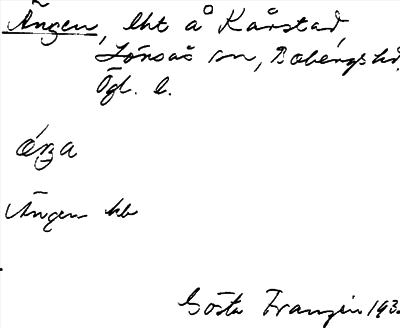 Ängen, lht å Kårstad,
Lönsås sn, Bobergs hd,
Ögl. l.
Ängen hb
Gösta Franzén 193